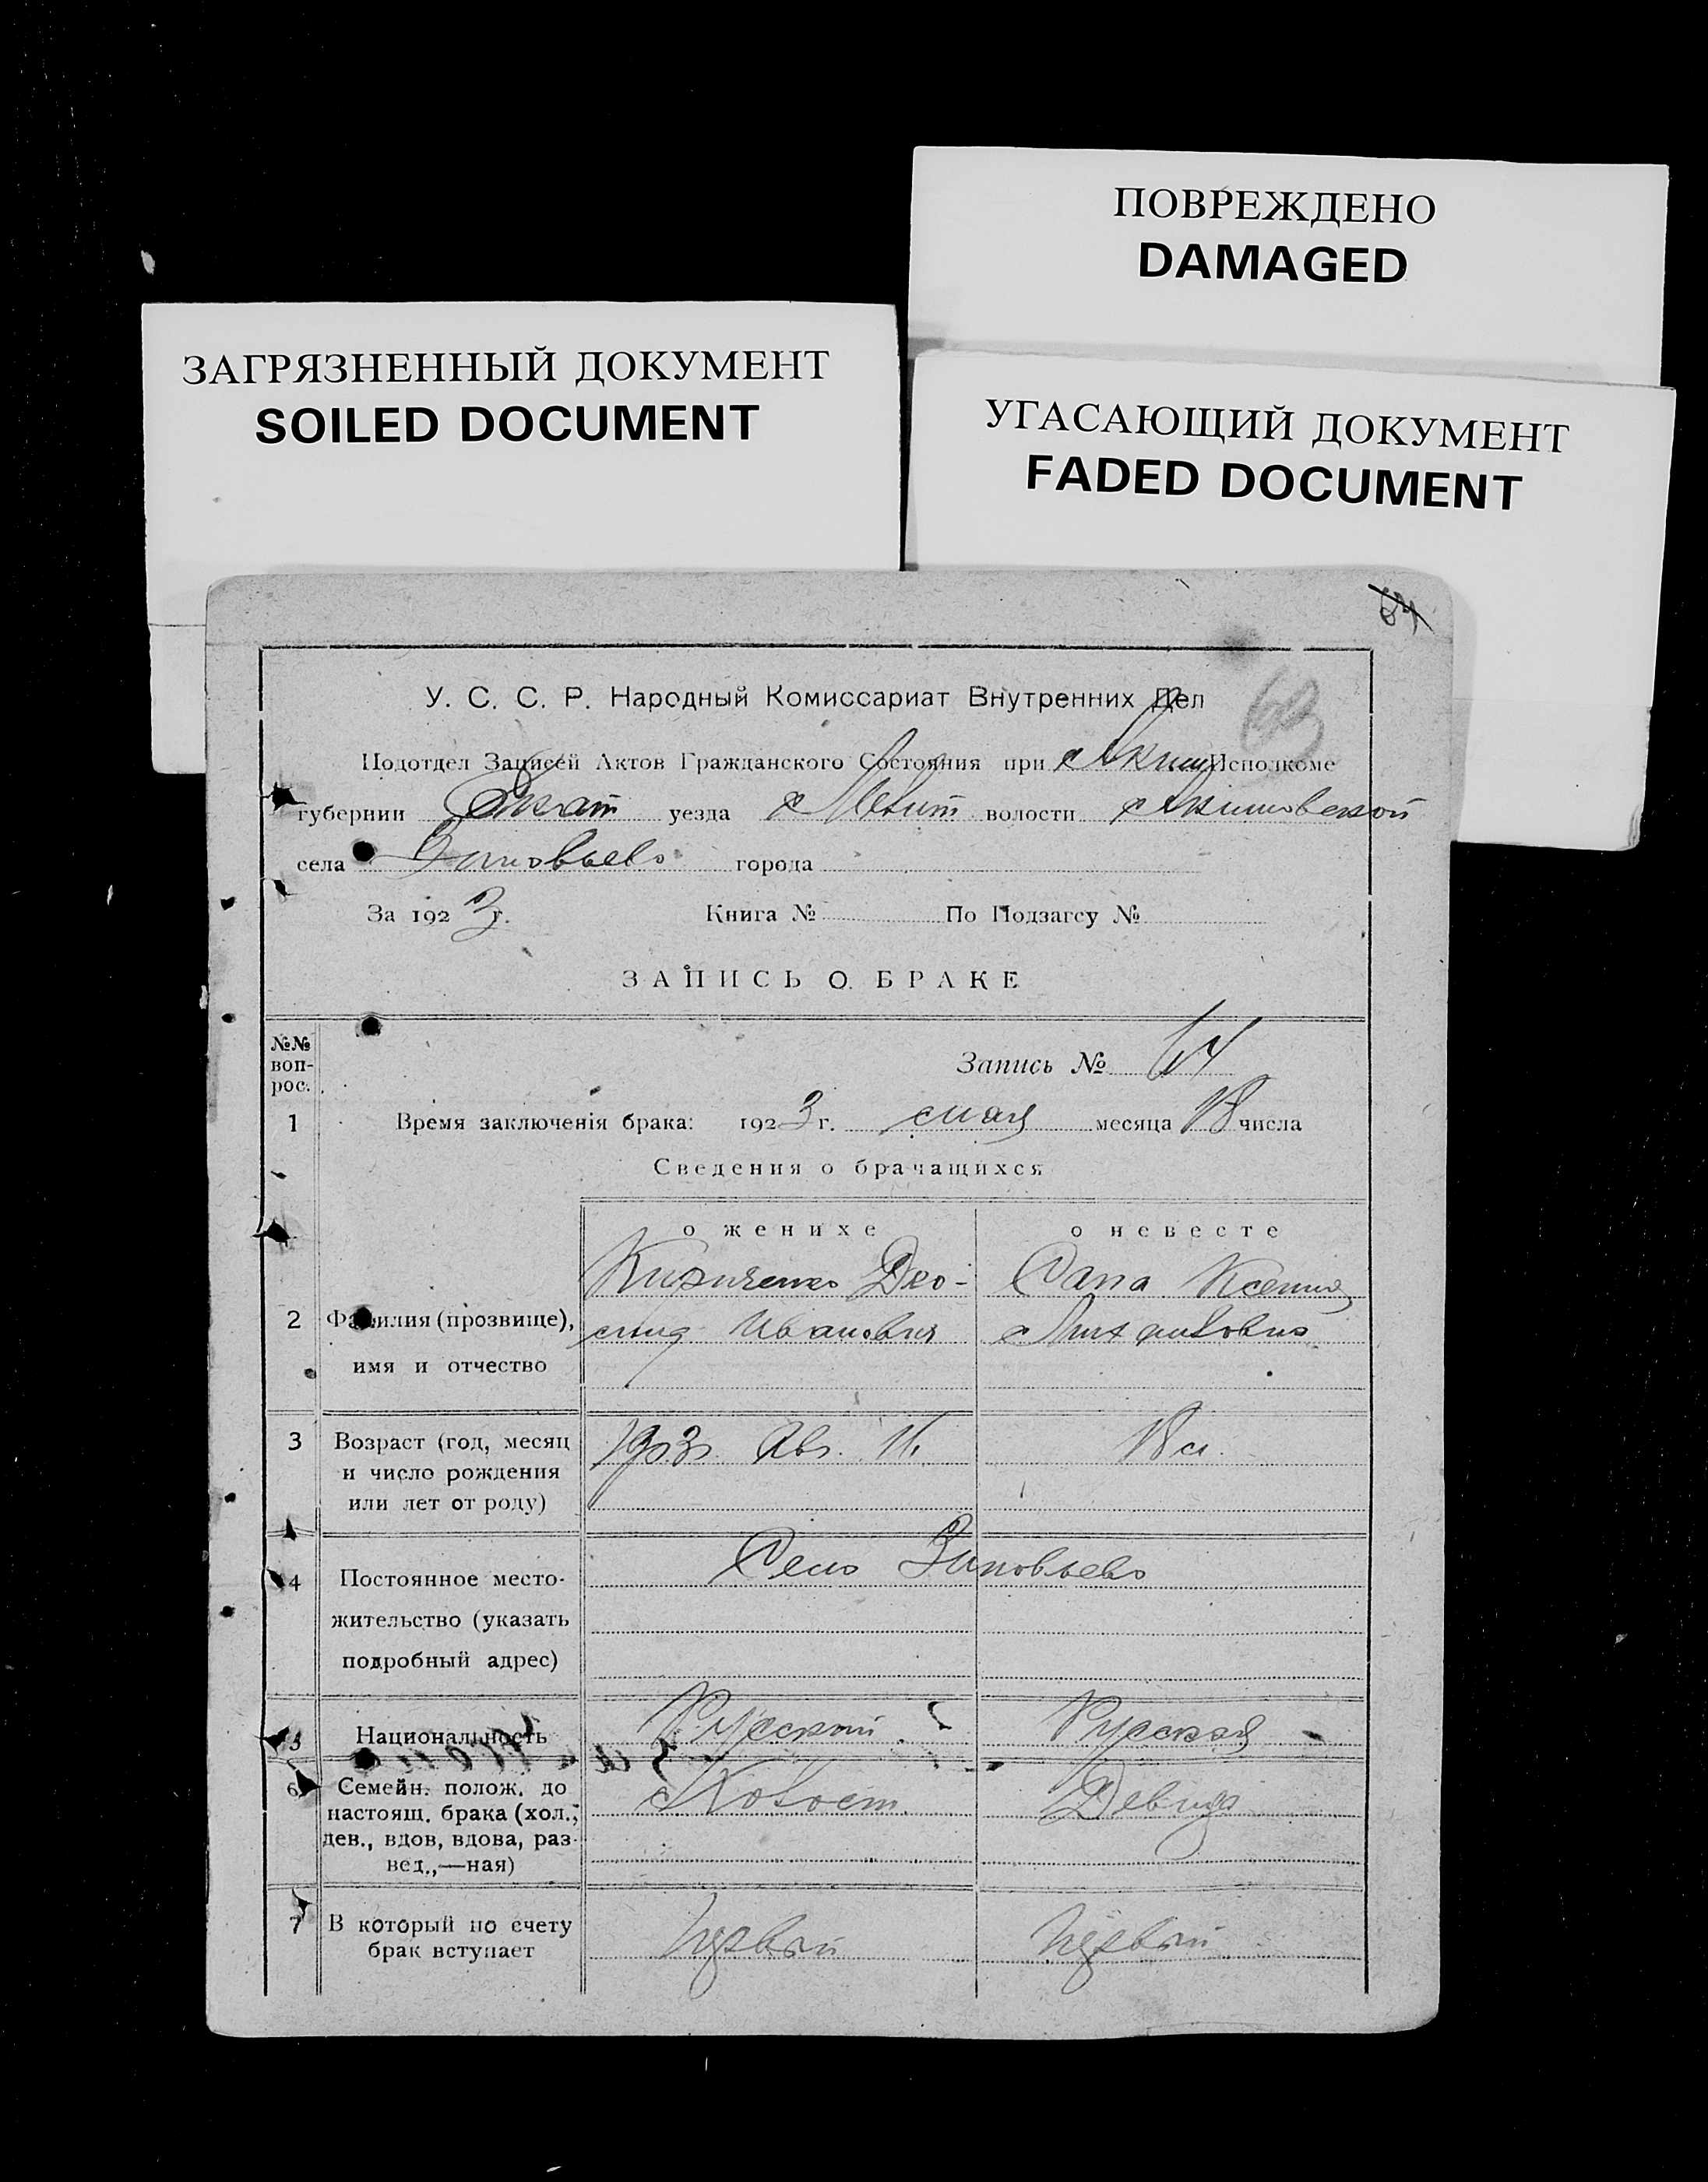 ПОВРЕЖДЕНО
DAMAGED
ЗАГРЯЗНЕННЫЙ ДОКУМЕНТ
SOILED DOCUMENT
УГАСАЮЩИЙ ДОКУМЕНТ
FADED DOCUMENT
У. С. С. Р. Народный Комиссариат Внутренних Дел
Подотдел Записей Актов Гражданского Состояния при Аким Исполкоме
губернии Екат уезда Мелит волости Акимовской
села Зиновьево города
За 1923 г. Книга № По Подзагсу №
ЗАПИСЬ О БРАКЕ
№№ воп- рос.
Запись № 64
1 Время заключенiя брака: 1923 г. мая месяца 18 числа
Сведения о брачащихся
о женихе о невесте
2 Фамилия (прозвище),
имя и отчество
Кириченко Иванович
Ксения
3 Возраст (год, месяц
и число рождения
или лет от роду)
1903г. Авг. 18 л.
4 Постоянное место-
жительство (указать
подробный адрес)
Село Зиновьево
5 Национальность Русский Русская
6 Семейн. полож. до
настоящ. брака (хол.,
дев., вдов, вдова, раз-
вед.,—ная)
Холост. Девица
7 В который по счету
брак вступает
первый первый